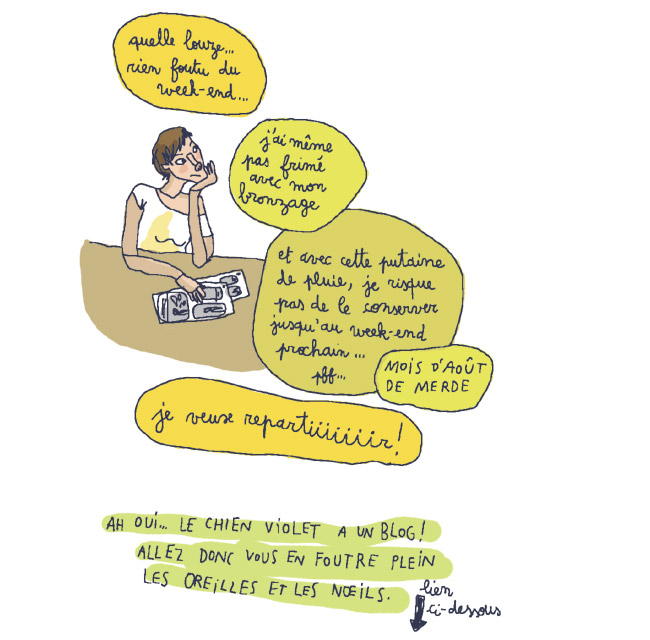 quelle louze...
rien foutu du
week-end...
j'ai même
pas frimé
avec mon
bronzage
et avec cette putaine
de pluie, je risque
pas de le conserver
jusqu'au week-end
prochain...
pff...
MOIS D'AOÛT
DE MERDE
je veuse repartiiiiiiir!
AH OUI... LE CHIEN VIOLET A UN BLOG!
ALLEZ DONC VOUS EN FOUTRE PLEIN
LES OREILLES ET LES NŒILS.
lien
ci-dessous